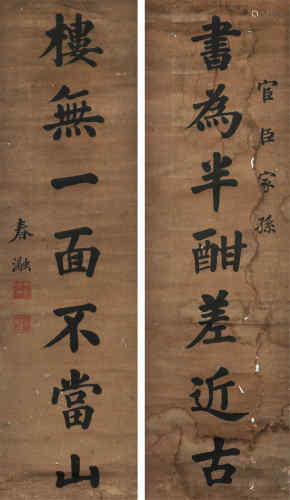 書為半酣差近古
官臣家孫
樓無一面不當山
春瀜